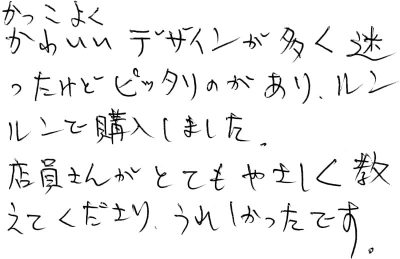 かっこよく
かわいいデザインが多く迷
ったけどピッタリのがあり、ルン
ルンで購入しました。
店員さんがとてもやさしく教
えてくださり、うれしかったです。